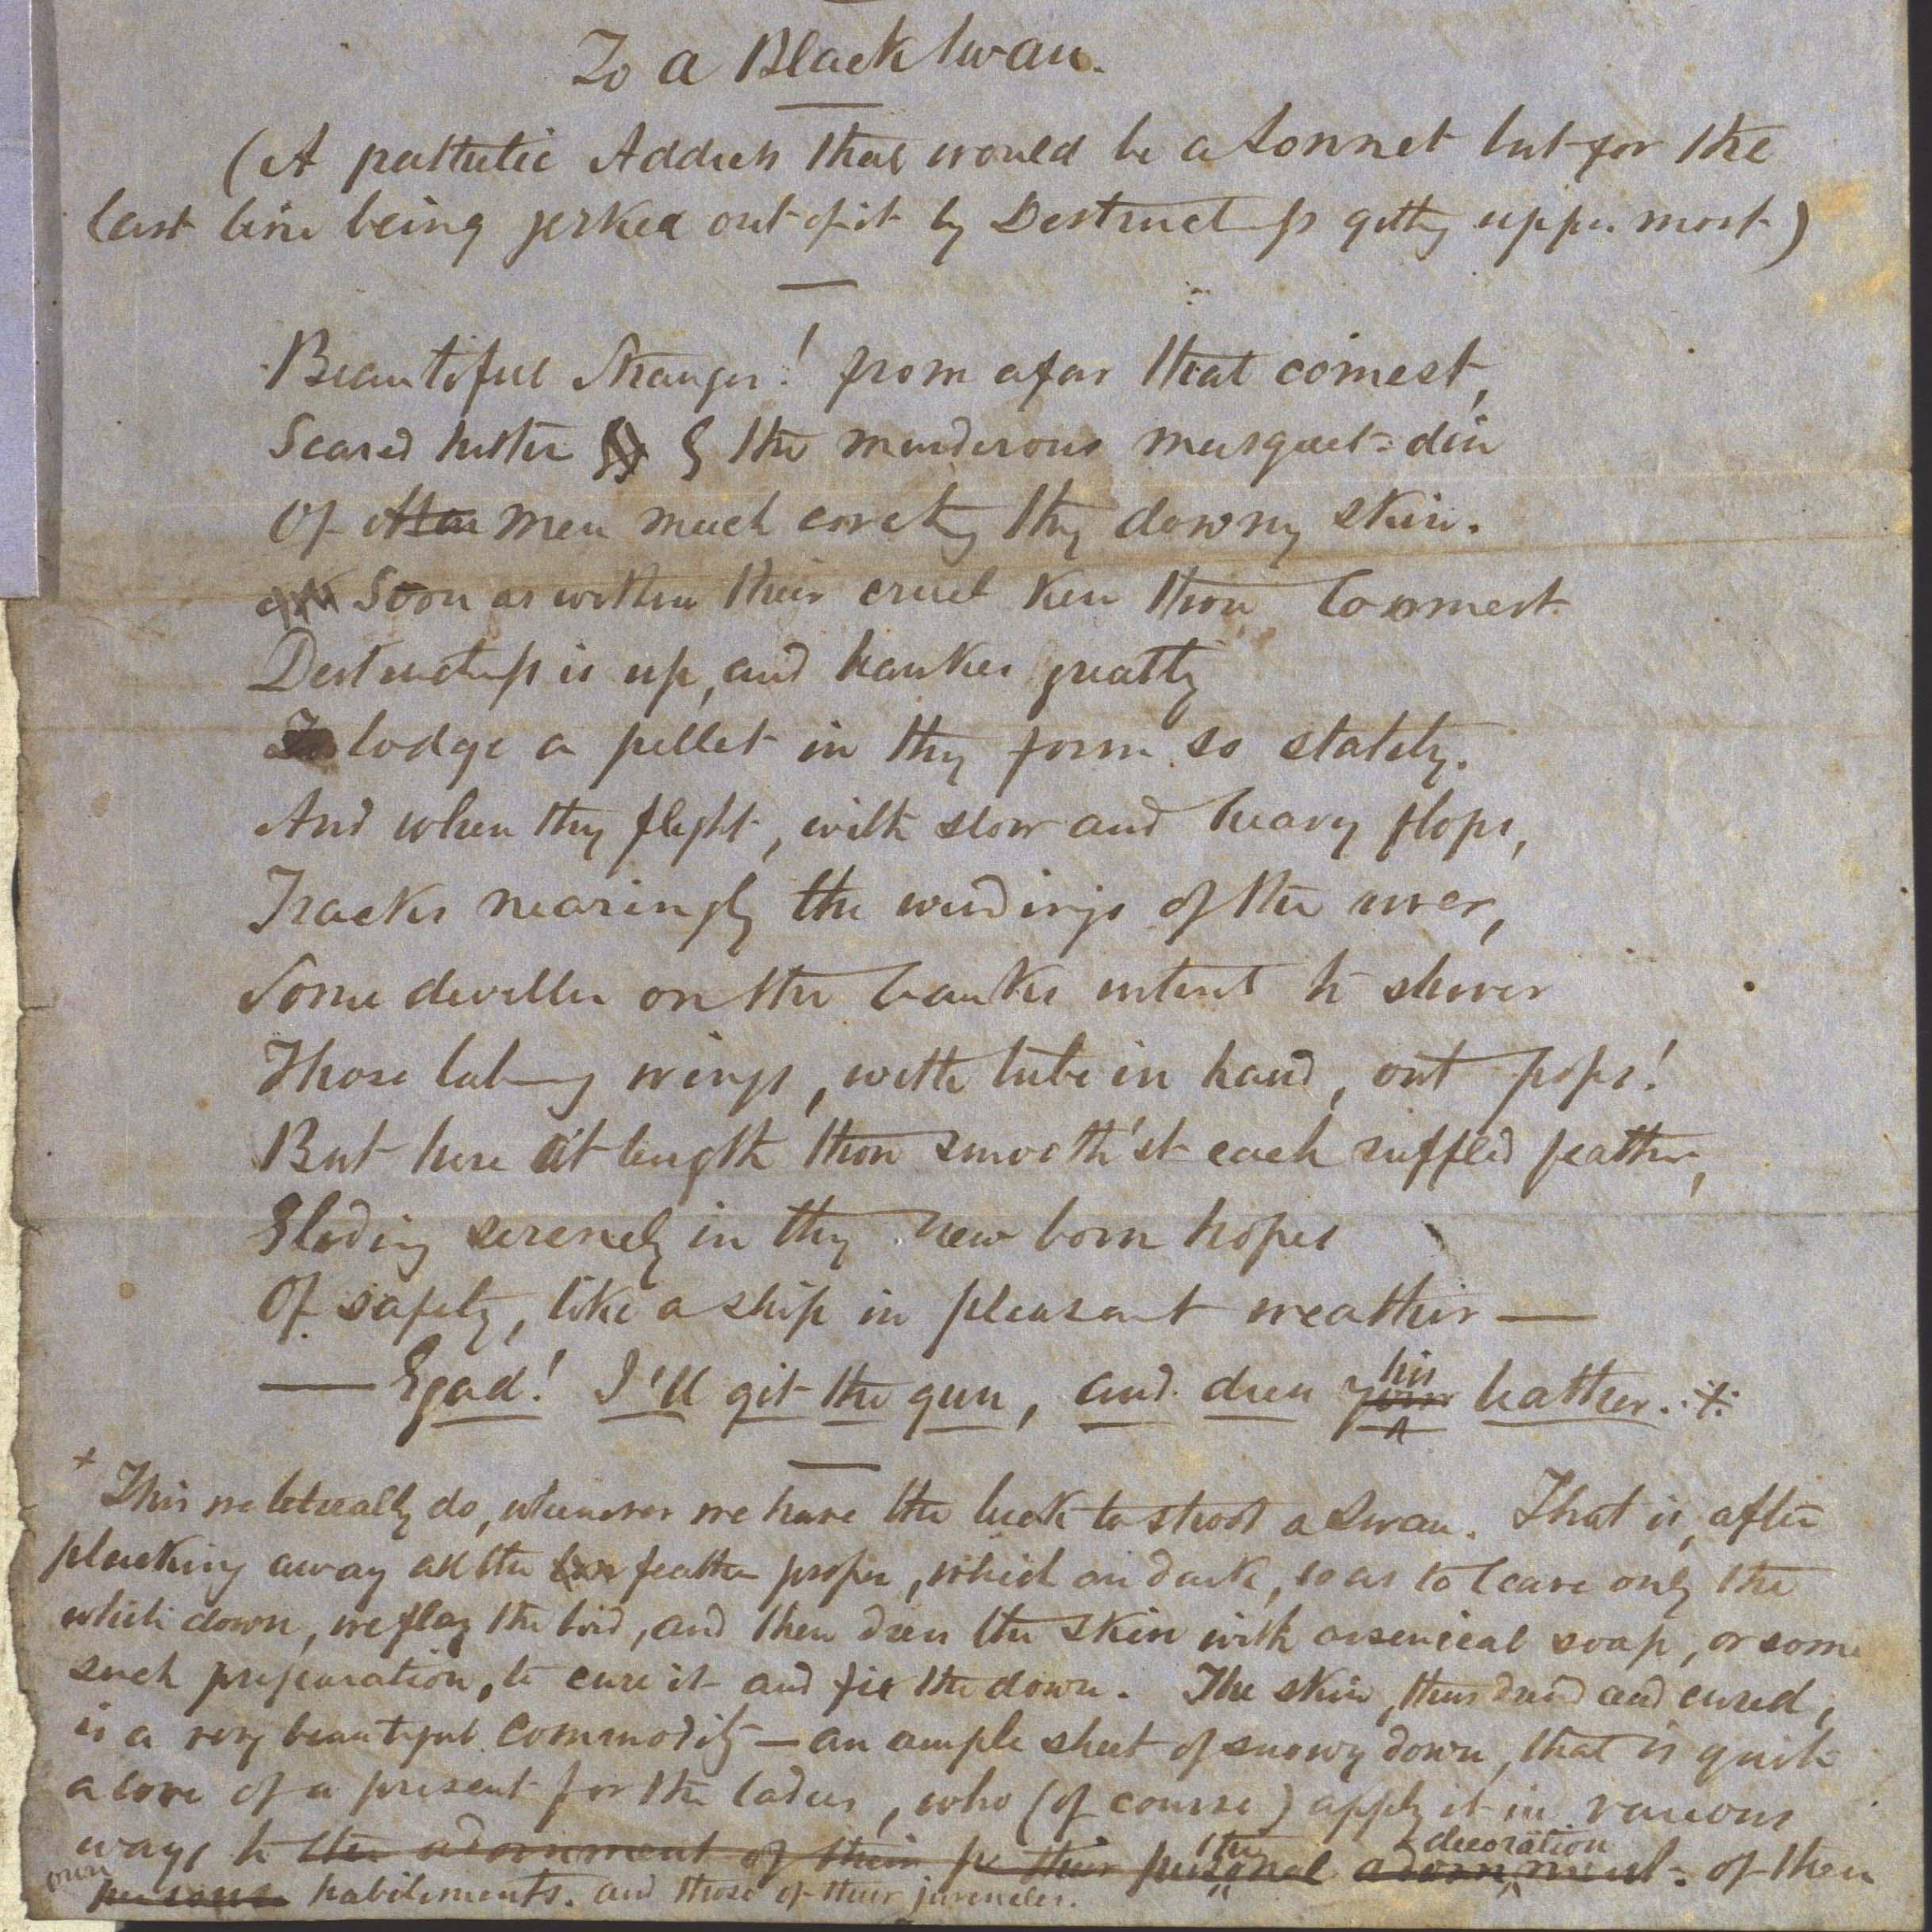 To a Black Swan.
(A pathetic Address that would be a Sonnet but for the
last line being jerked out of it by Destructss getty uppermost)
Beautiful Stranger! from afar that comest,
Scared hither by the murderous musquet-din
Of men much covetg thy downy skin.
Soon as within their cruel ken thou
Destructss is up, and hankers greatly
To lodge a pellet in thy form so stately.
And when thy flight, with slow and heavy flops,
Tracks nearingly the windings of the river,
Some dweller on the banks intent to shiver
Those labg wings, with tube in hand, out pops!
But here at length thou smooth'st each ruffled feather,
Gliding serenely in thy new born hopes
Of safety, like a ship in pleasant weather —
— Egad! I'll git the gun, and dress your his leather. +
+ This we literally do, whenever we have the luck to shoot a Swan. That is, after
plucking away all the feather proper, which are dark, so as to leave only the
white down, we flay the bird, and then dress the skin with arsenical soap, or some
such preparation, to cure it and fix the down. The skin, thus dried and cured,
is a very beautiful commodity — an ample sheet of snowy down, that is quite
a love of a present for the ladies, who (of course) apply it in various
ways to the adornment of their pe their personal the adornment decoration of their
persons own habiliments. and those of their juveniles.